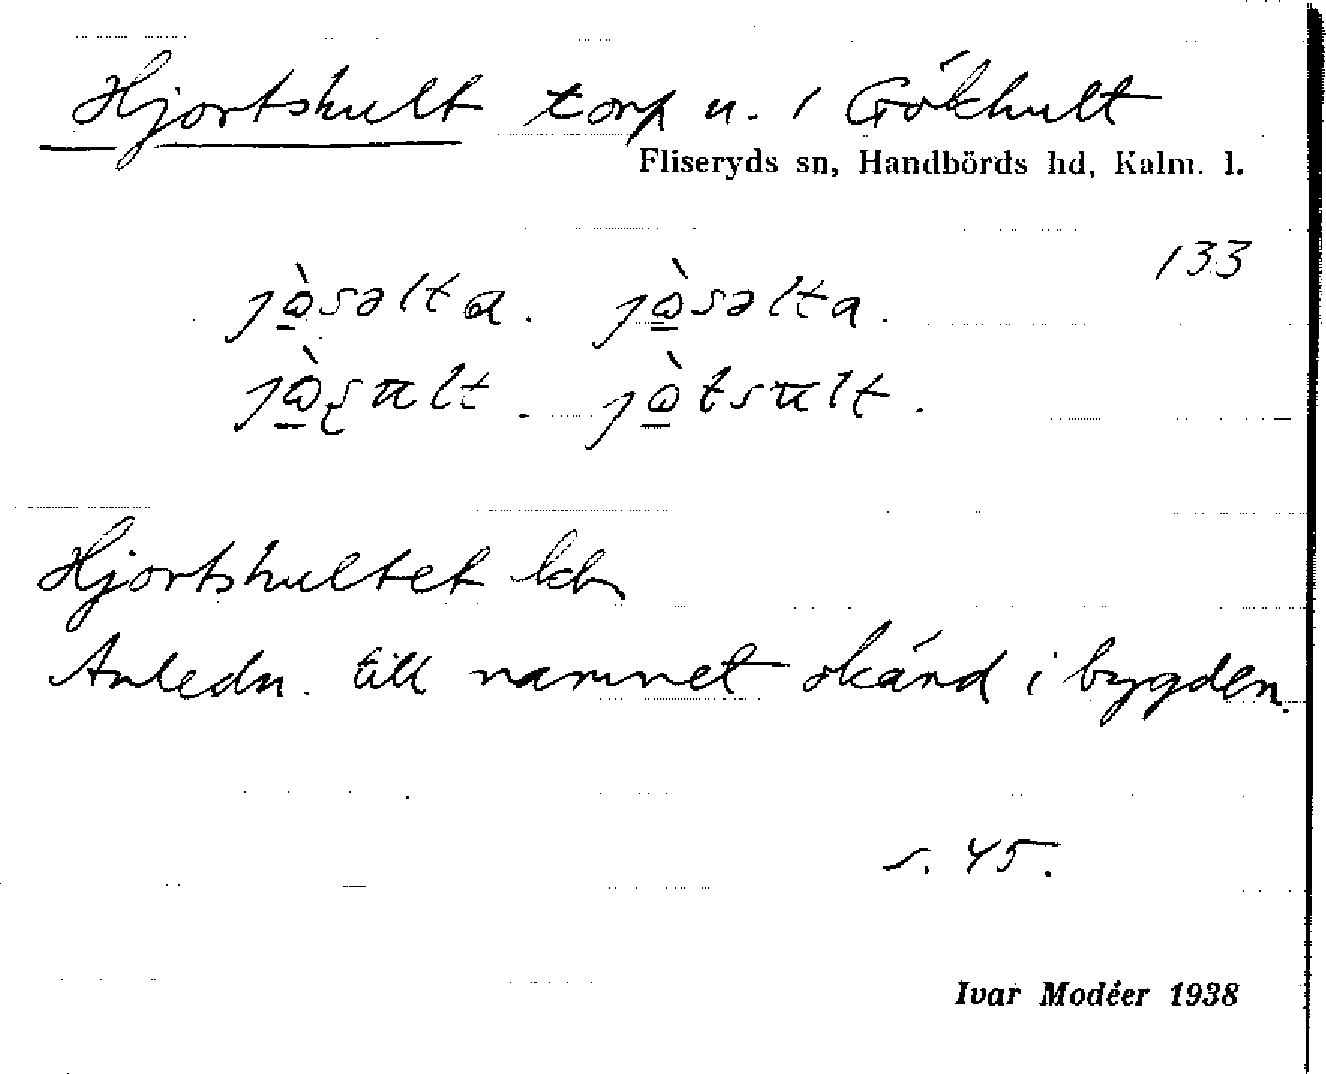 Hjortshult torp u. 1 Gökhult
Fliseryds sn, Handbörds hd, Kalm. l.
133
jòsəlta. jòsəlta.
jòsult. jòtsult.
Hjortshultet kbr
Anledn. till namnet okänd i bygden.
s. 45.
Ivar Modéer 1938